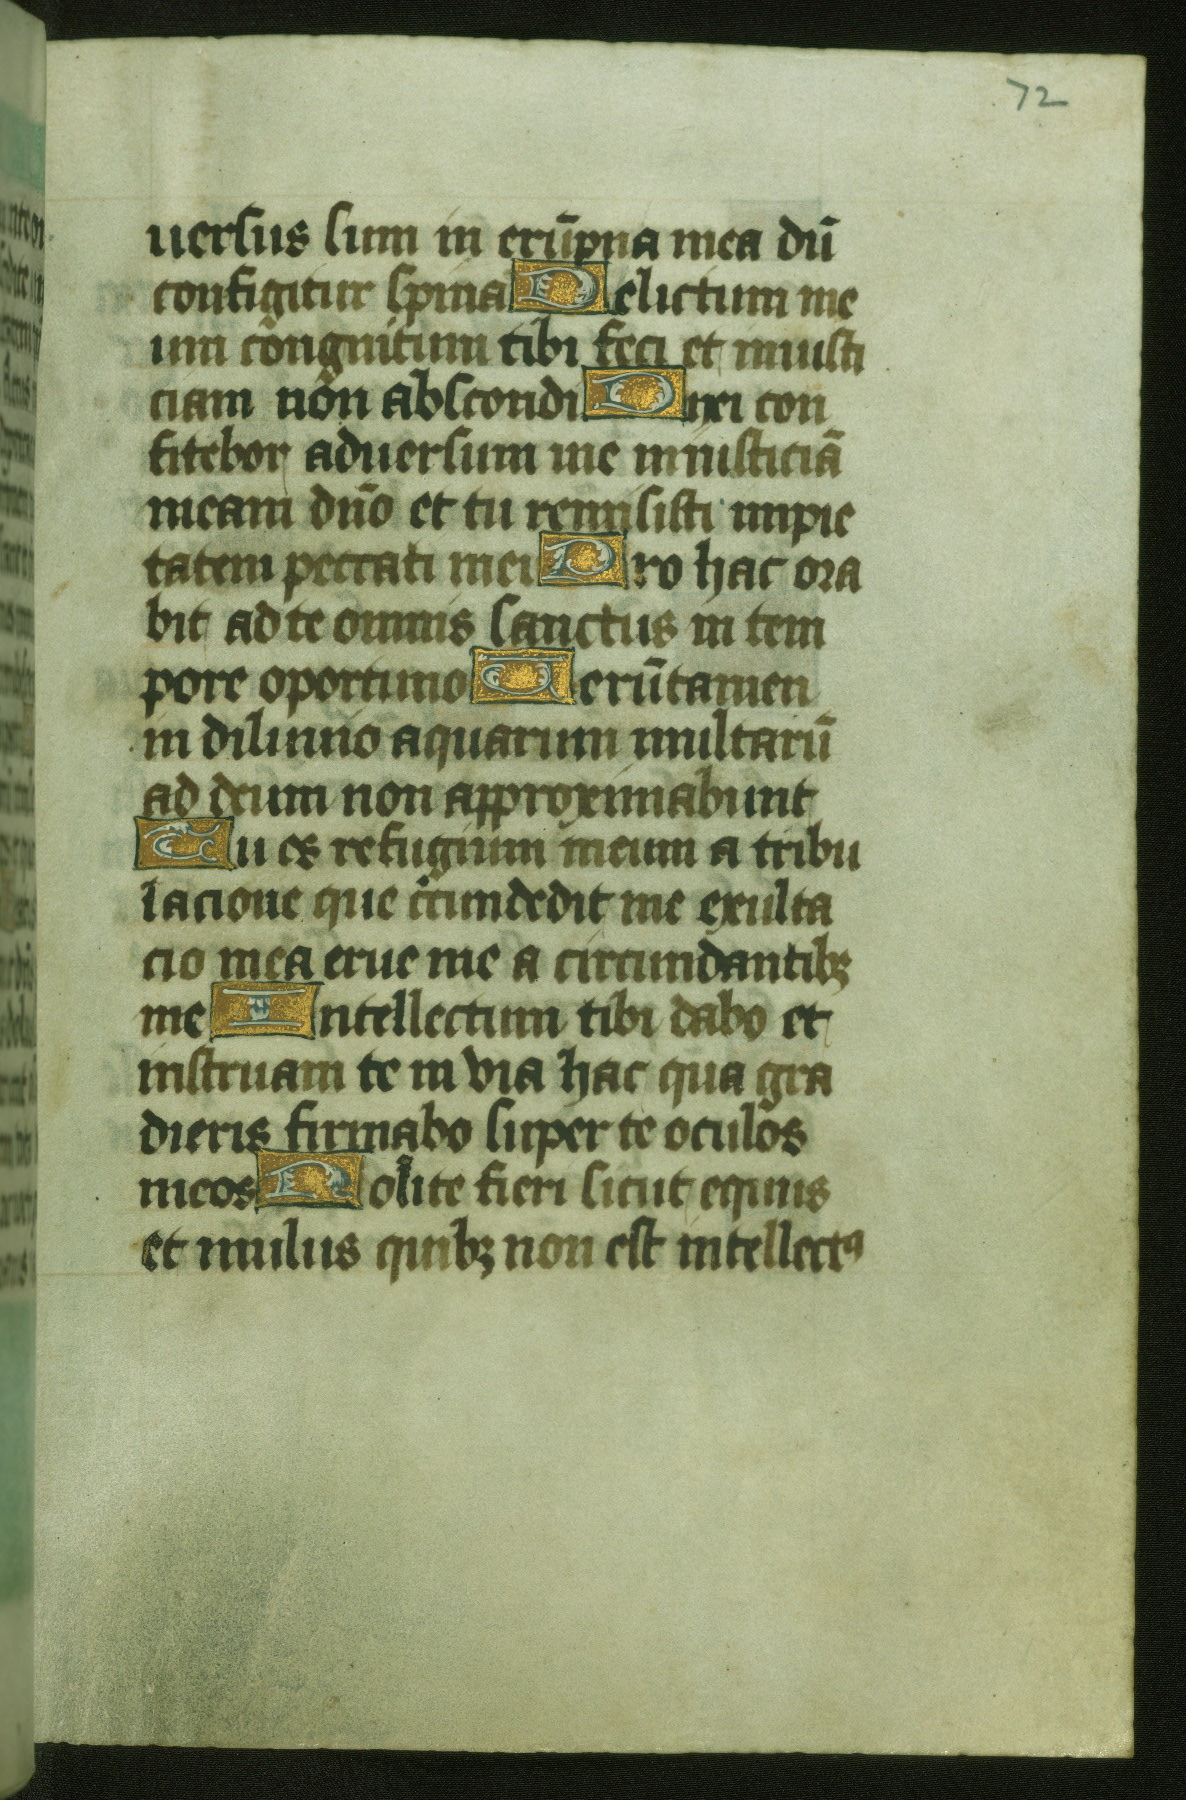 72
uersus sum in erūpna mea dū
configitur spina Delictum me
um côngnitum tibi feci et iniusti
ciam nôn abscondi Dixi con
fitebor aduersum me iniusticiā
meam dño et tu remisisti impie
tatem peccati mei Pro hac ora
bit ad te omnis sanctus in tem
pore oportuno Uerūtamen
in diluuio aquarum multarū
ad deum non approximabunt
Tu es refugium meum a tribu
lacione que c̄cumdedit me exulta
cio mea erue me a circumdantibꝫ
me Intellectum tibi dabo et
instruam te in via hac qua gra
dieris firmabo super te oculos
meos Nolite fieri sicut equus
et mulus quibꝫ non est intellectꝰ